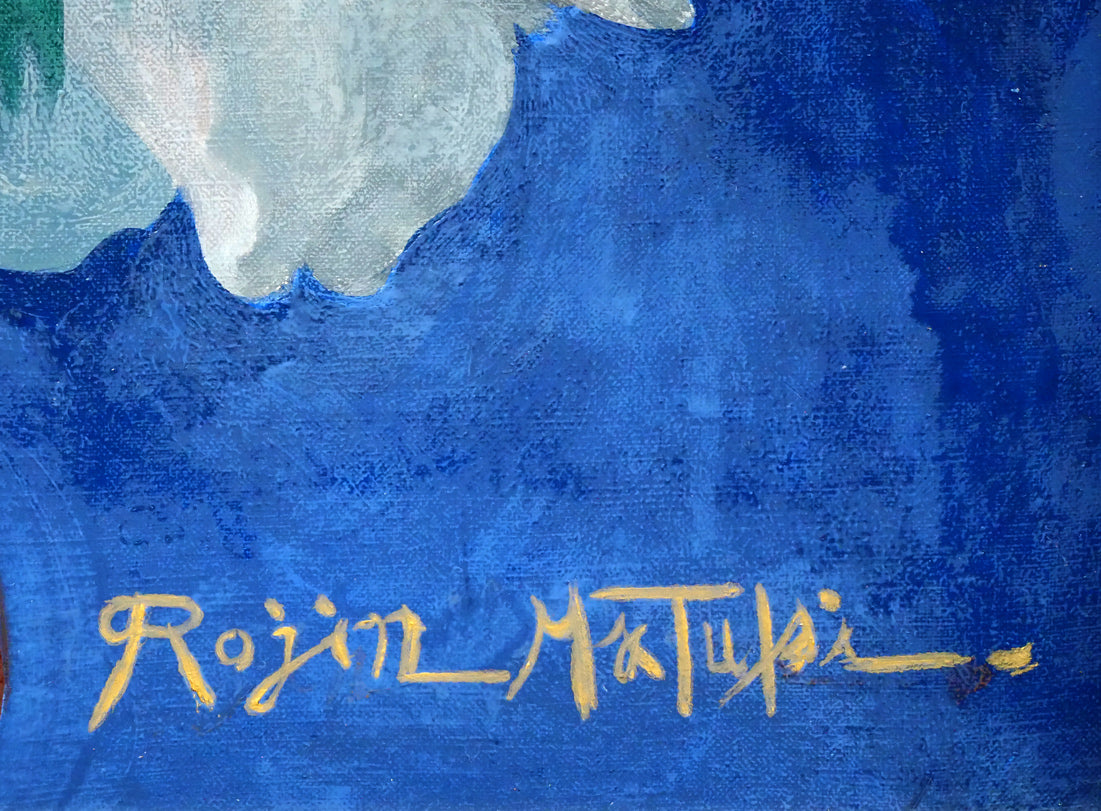 Rojin MaTuki.